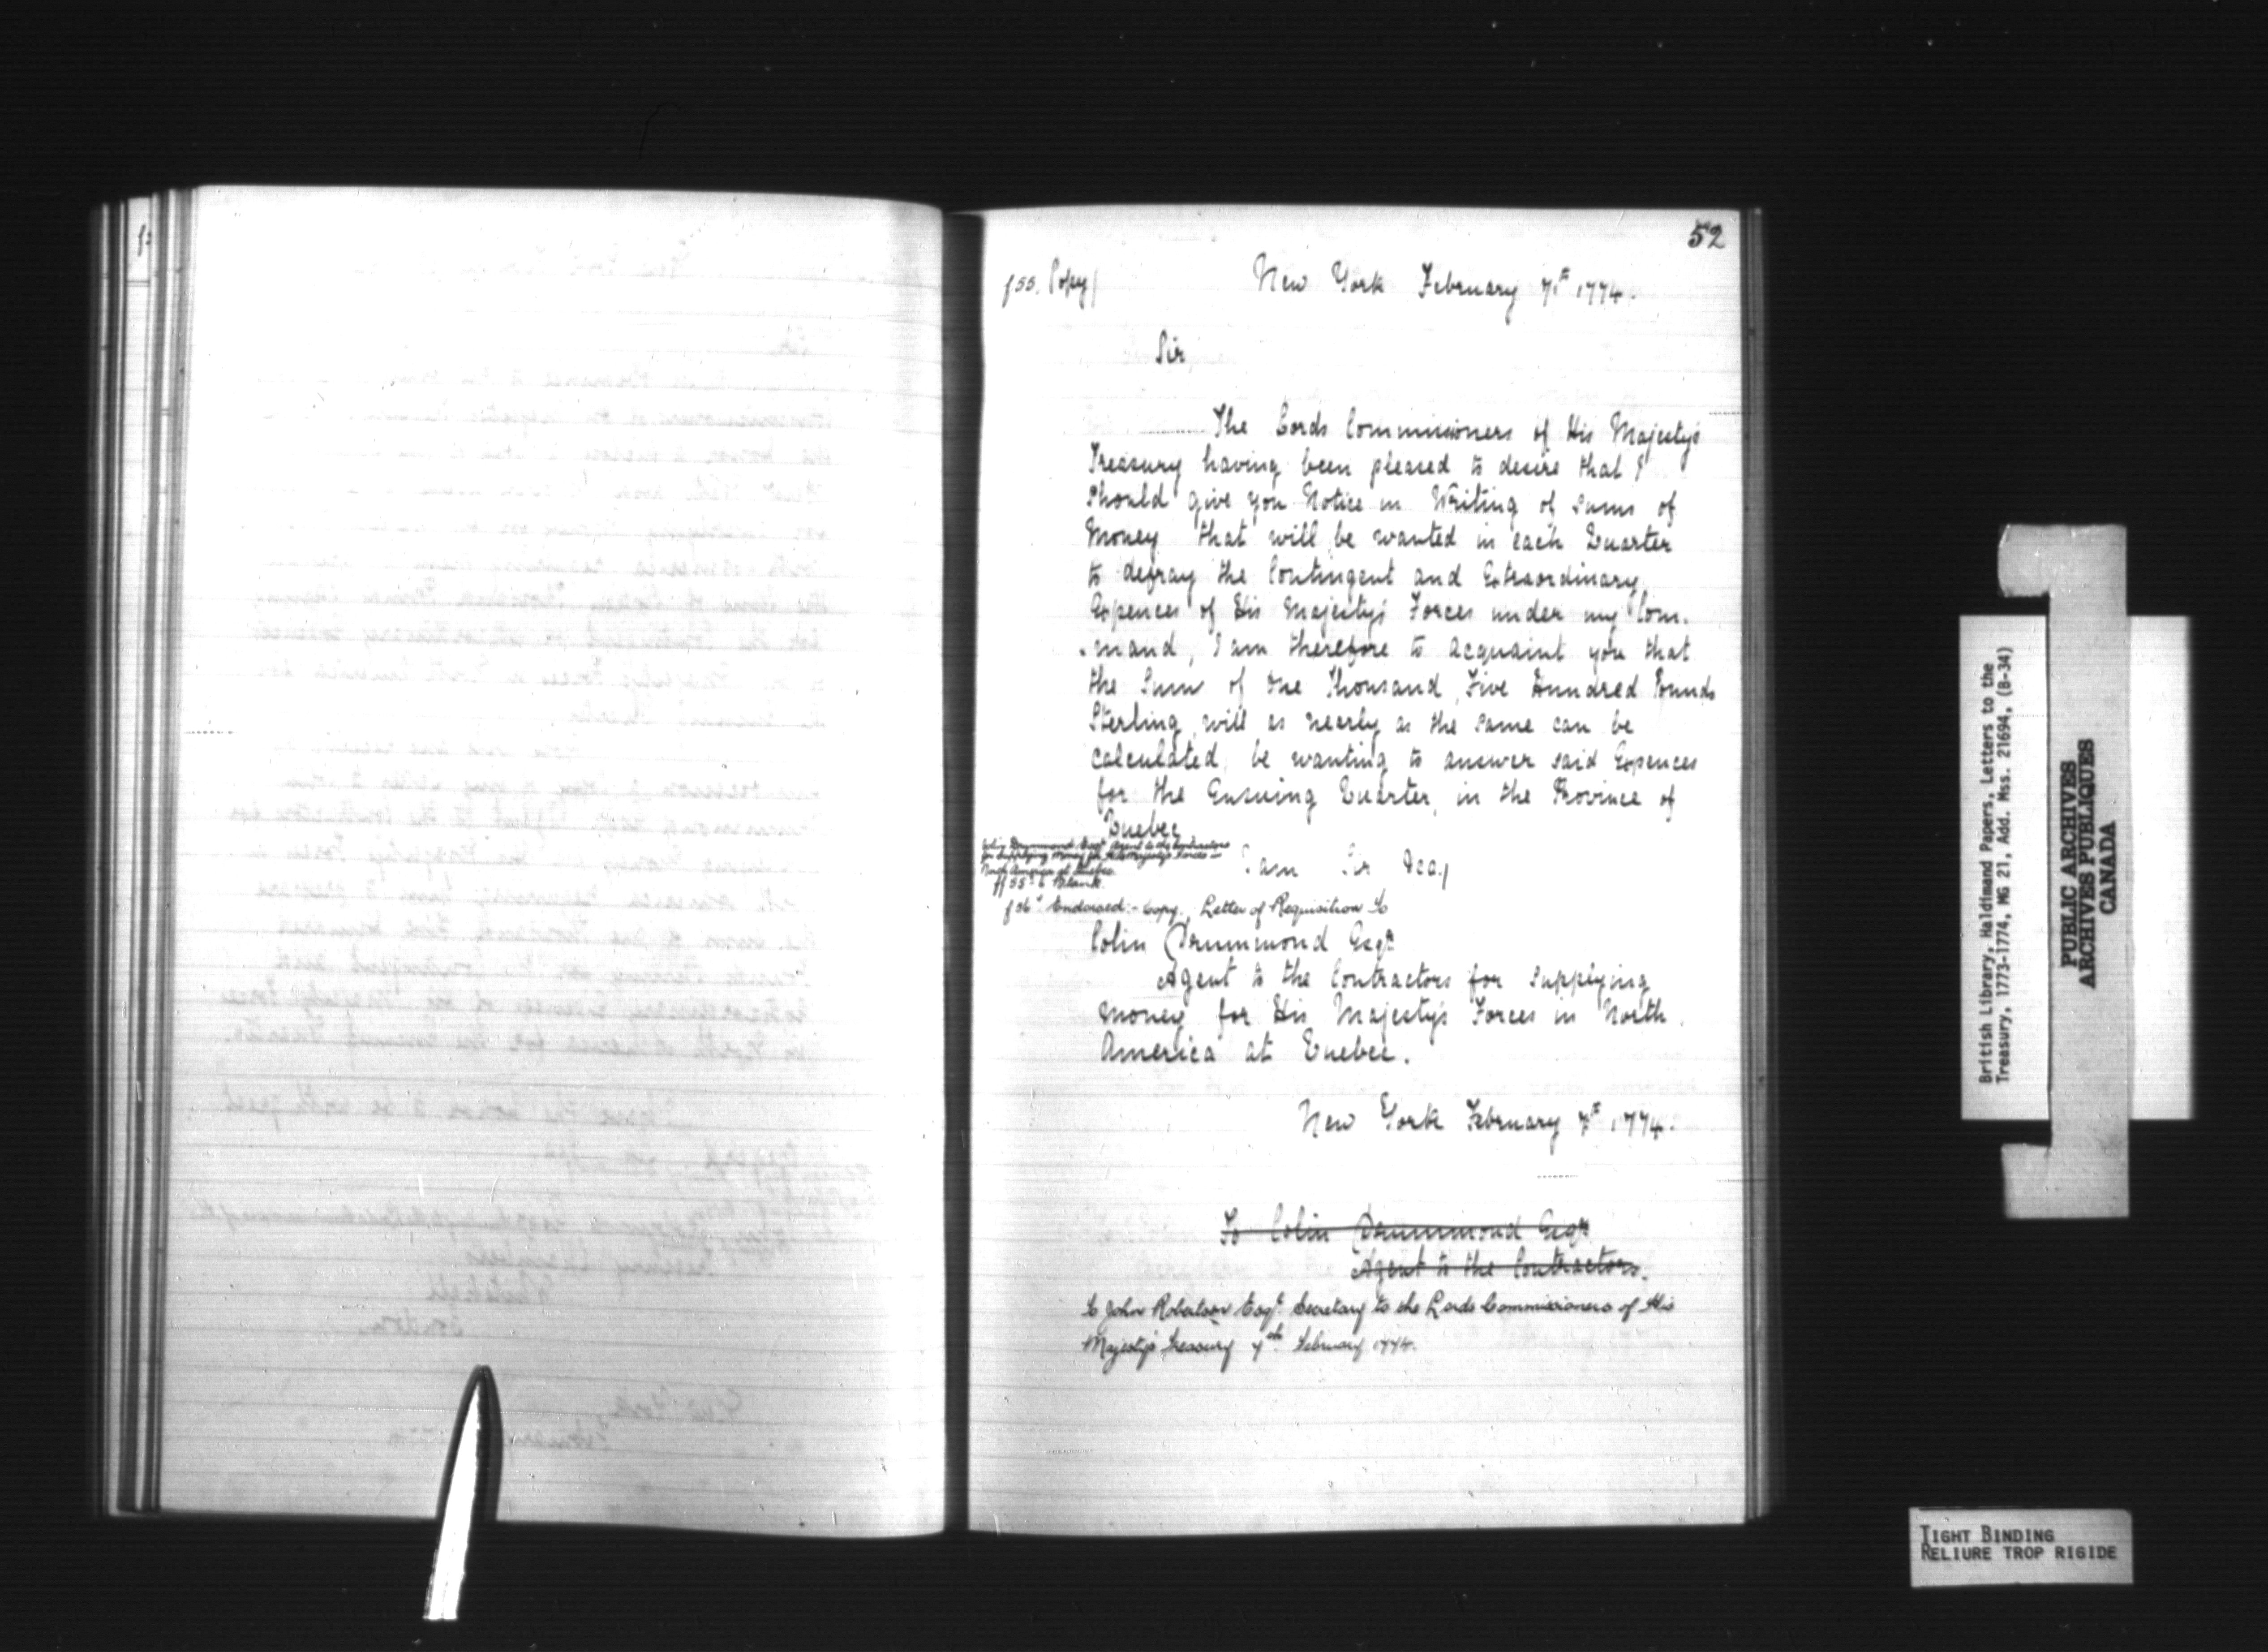 52
f 55. Copy/ New York February 7th 1774.
Sir,
The Lords Commissioners of His Majesty's
Treasury having been pleased to desire that I
should give you Notice in Writing of Sums of
Money that will be wanted in each Quarter
to defray the Contingent and Extraordinary
Expences of His Majesty's Forces under my Com.
.mand, I am therefore to acquaint you that
the Sum of One Thousand, Five Hundred Pounds
Sterling, will as nearly as the same can be
calculated, be wanting to answer said Expences
for the Ensuing Quarter, in the Province of
Quebec
Colin Drummond Esqr Agent to the Contractors
for Supplying Money for His Majesty's Forces in
North America at Quebec.
ff 55b Blank.
I am Sir &ca/
f 56b Endorsed:- Copy. Letter of Requisition to
Colin Drummond Esqr
Agent to the Contractors for supplying
Money for His Majesty's Forces in North
America at Quebec.
New York February 7th 1774.
To Colin Drummond Esqr
Agent to the Contractors.
to John Robertson Esqr Secretary to the Lords Commissioners of His
Majesty's Treasury 7th February 1774.
British Library, Haldimand Papers, Letters to the
Treasury, 1773-1774, MG 21, Add. Mss. 21694, (B-34)
PUBLIC ARCHIVES
ARCHIVES PUBLIQUES
CANADA
TIGHT BINDING
RELIURE TROP RIGIDE